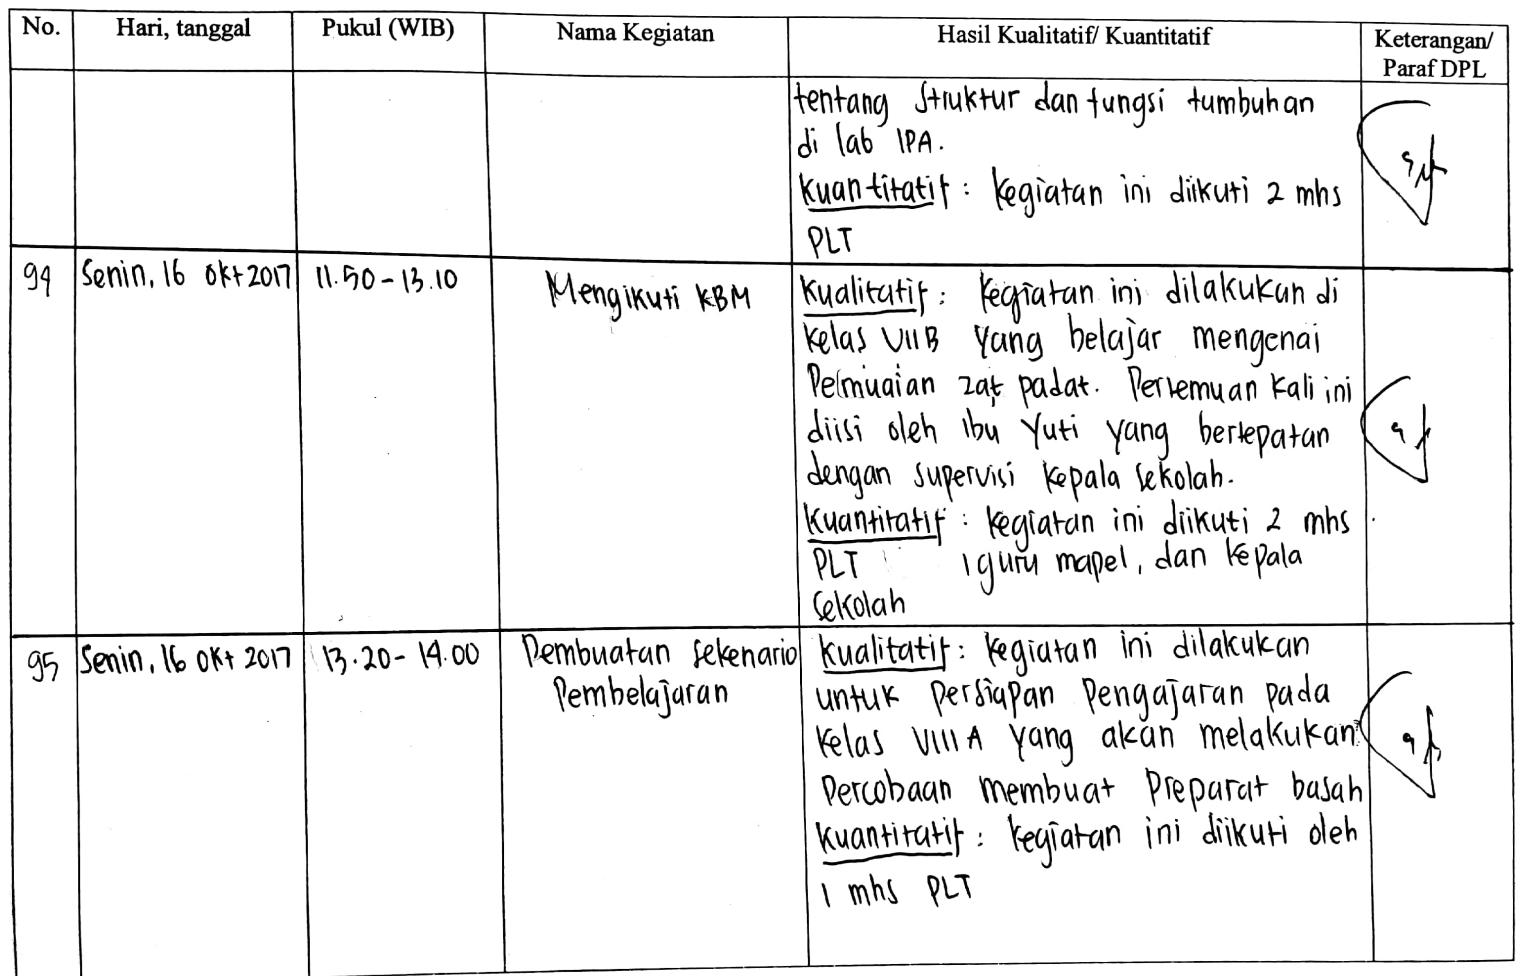 No. Hari, tanggal Pukul (WIB) Nama Kegiatan Hasil Kualitatif/ Kuantitatif Keterangan/
Paraf DPL
tentang Struktur dan fungsi tumbuhan
di lab IPA.
Kuantitatif : Kegiatan ini diikuti 2 mhs
PLT
94 Senin, 16 Okt 2017 11.50-13.10 Mengikuti KBM Kualitatif : Kegiatan ini dilakukan di
Kelas VIIB yang belajar mengenai
Pemuaian zat padat. Pertemuan Kali ini
diisi oleh ibu Yuti yang bertepatan
dengan supervisi Kepala Sekolah.
Kuantitatif : Kegiatan ini diikuti 2 mhs
PLT 1 guru mapel, dan Kepala
Sekolah
95 Senin, 16 Okt 2017 13.20-14.00 Pembuatan Sekenario Kualitatif : Kegiatan ini dilakukan
Pembelajaran untuk Persiapan Pengajaran pada
Kelas VIII A yang akan melakukan
Percobaan membuat Preparat basah
Kuantitatif : Kegiatan ini diikuti oleh
1 mhs PLT